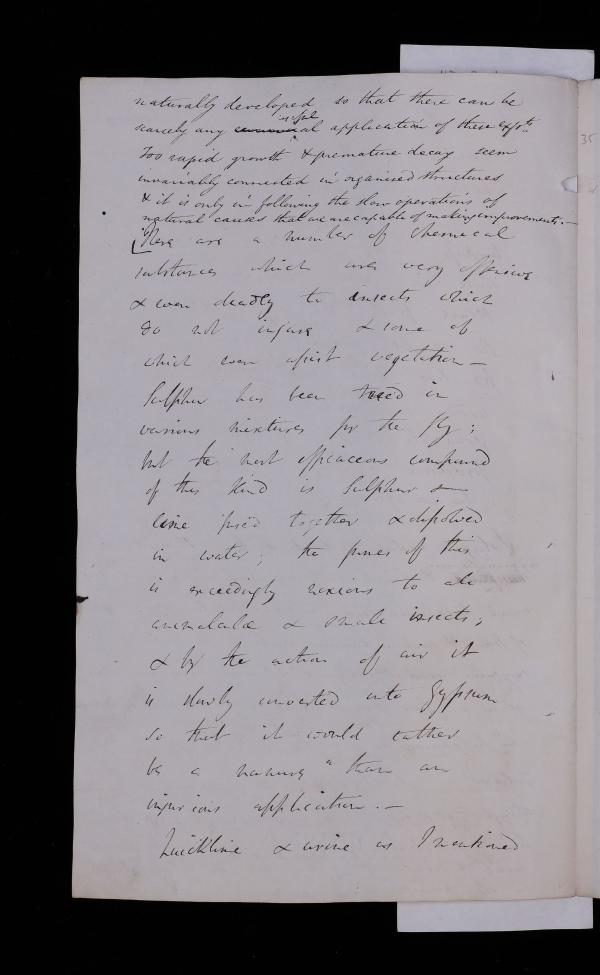 naturally developed so that there can be
useful
scarcely any application of these Expts
Too rapid growth & premature decay seem
invariably connected in organised structures
& it is only in following the slow operations of
natural causes that we are capable of making improvements. —
There are a number of chemical
substances which are very offensive
& even deadly to insects which
do not injure & some of
which even assist vegetation —
Sulphur has been tried in
various mixtures for the fly;
but the most efficacious compound
of this kind is Sulphur &
lime fused together & dissolved
in water; the fumes of this
is exceedingly noxious to all
animalculæ & small insects;
& by the action of air it
is slowly converted into Gypsum
so that it would rather
be a manure than an
injurious application. —
Quicklime & urine as I mentioned
35